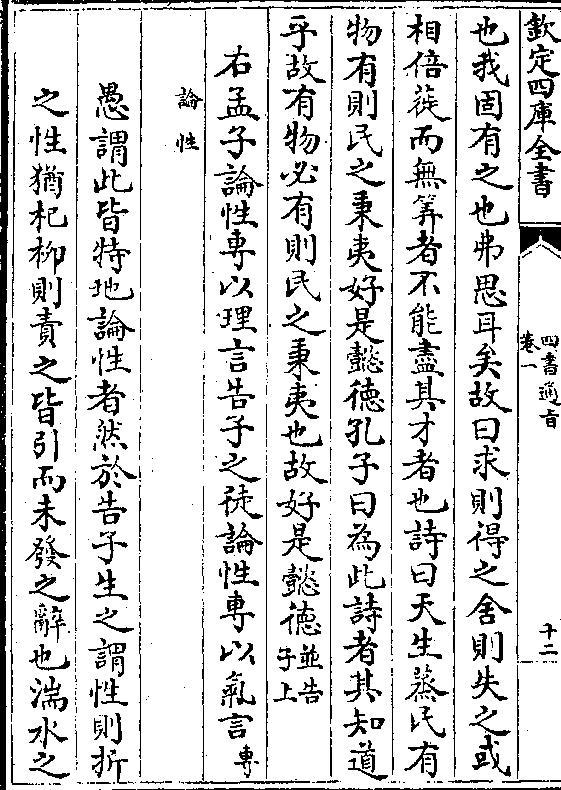 欽定四庫全書
四書通旨
卷一
十二
也我固有之也弗思耳矣故曰求則得之舍則失之或
相倍蓰而無筭者不能盡其才者也詩曰天生蒸民有
物有則民之秉夷好是懿德孔子曰為此詩者其知道
乎故有物必有則民之秉夷也故好是懿德並告子上
右孟子論性專以理言告子之徒論性專以氣言專
論性
愚謂此皆特地論性者然於告子生之謂性則折
之性猶杞柳則責之皆引而未發之辭也湍水之